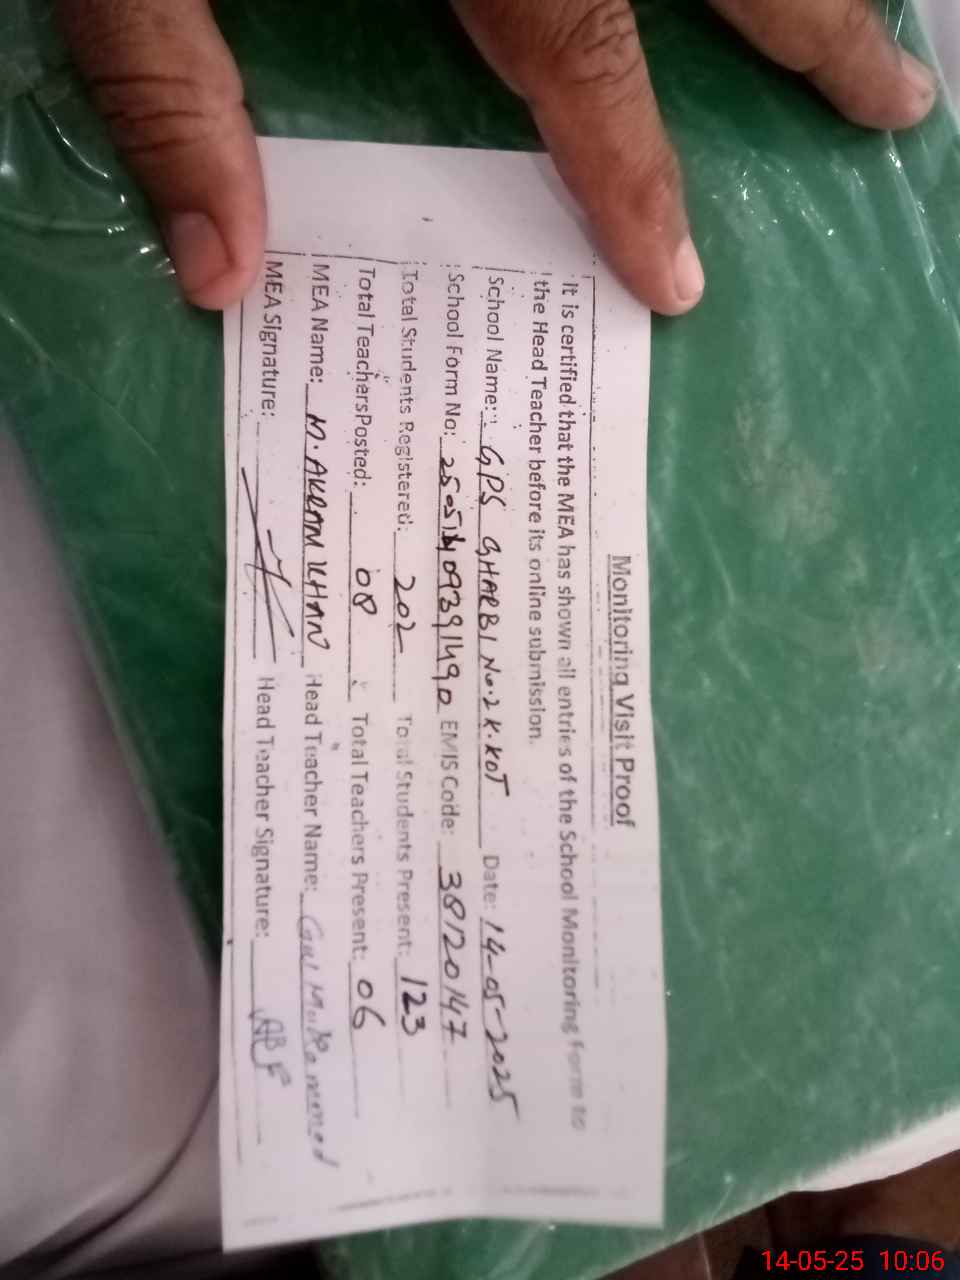 Monitoring Visit Proof
It is certified that the MEA has shown all entries of the School Monitoring Form to
the Head Teacher before its online submission.
School Name: GPS GHARBI No.2 K.KOT Date: 14-05-2025
School Form No: EMIS Code: 38120147
Total Students Registered: 202 Total Students Present: 123
Total TeachersPosted: 08 Total Teachers Present: 06
MEA Name: M. AKRAM KHAN Head Teacher Name: Gul Muhammad
MEA Signature: Head Teacher Signature:
14-05-25 10:06